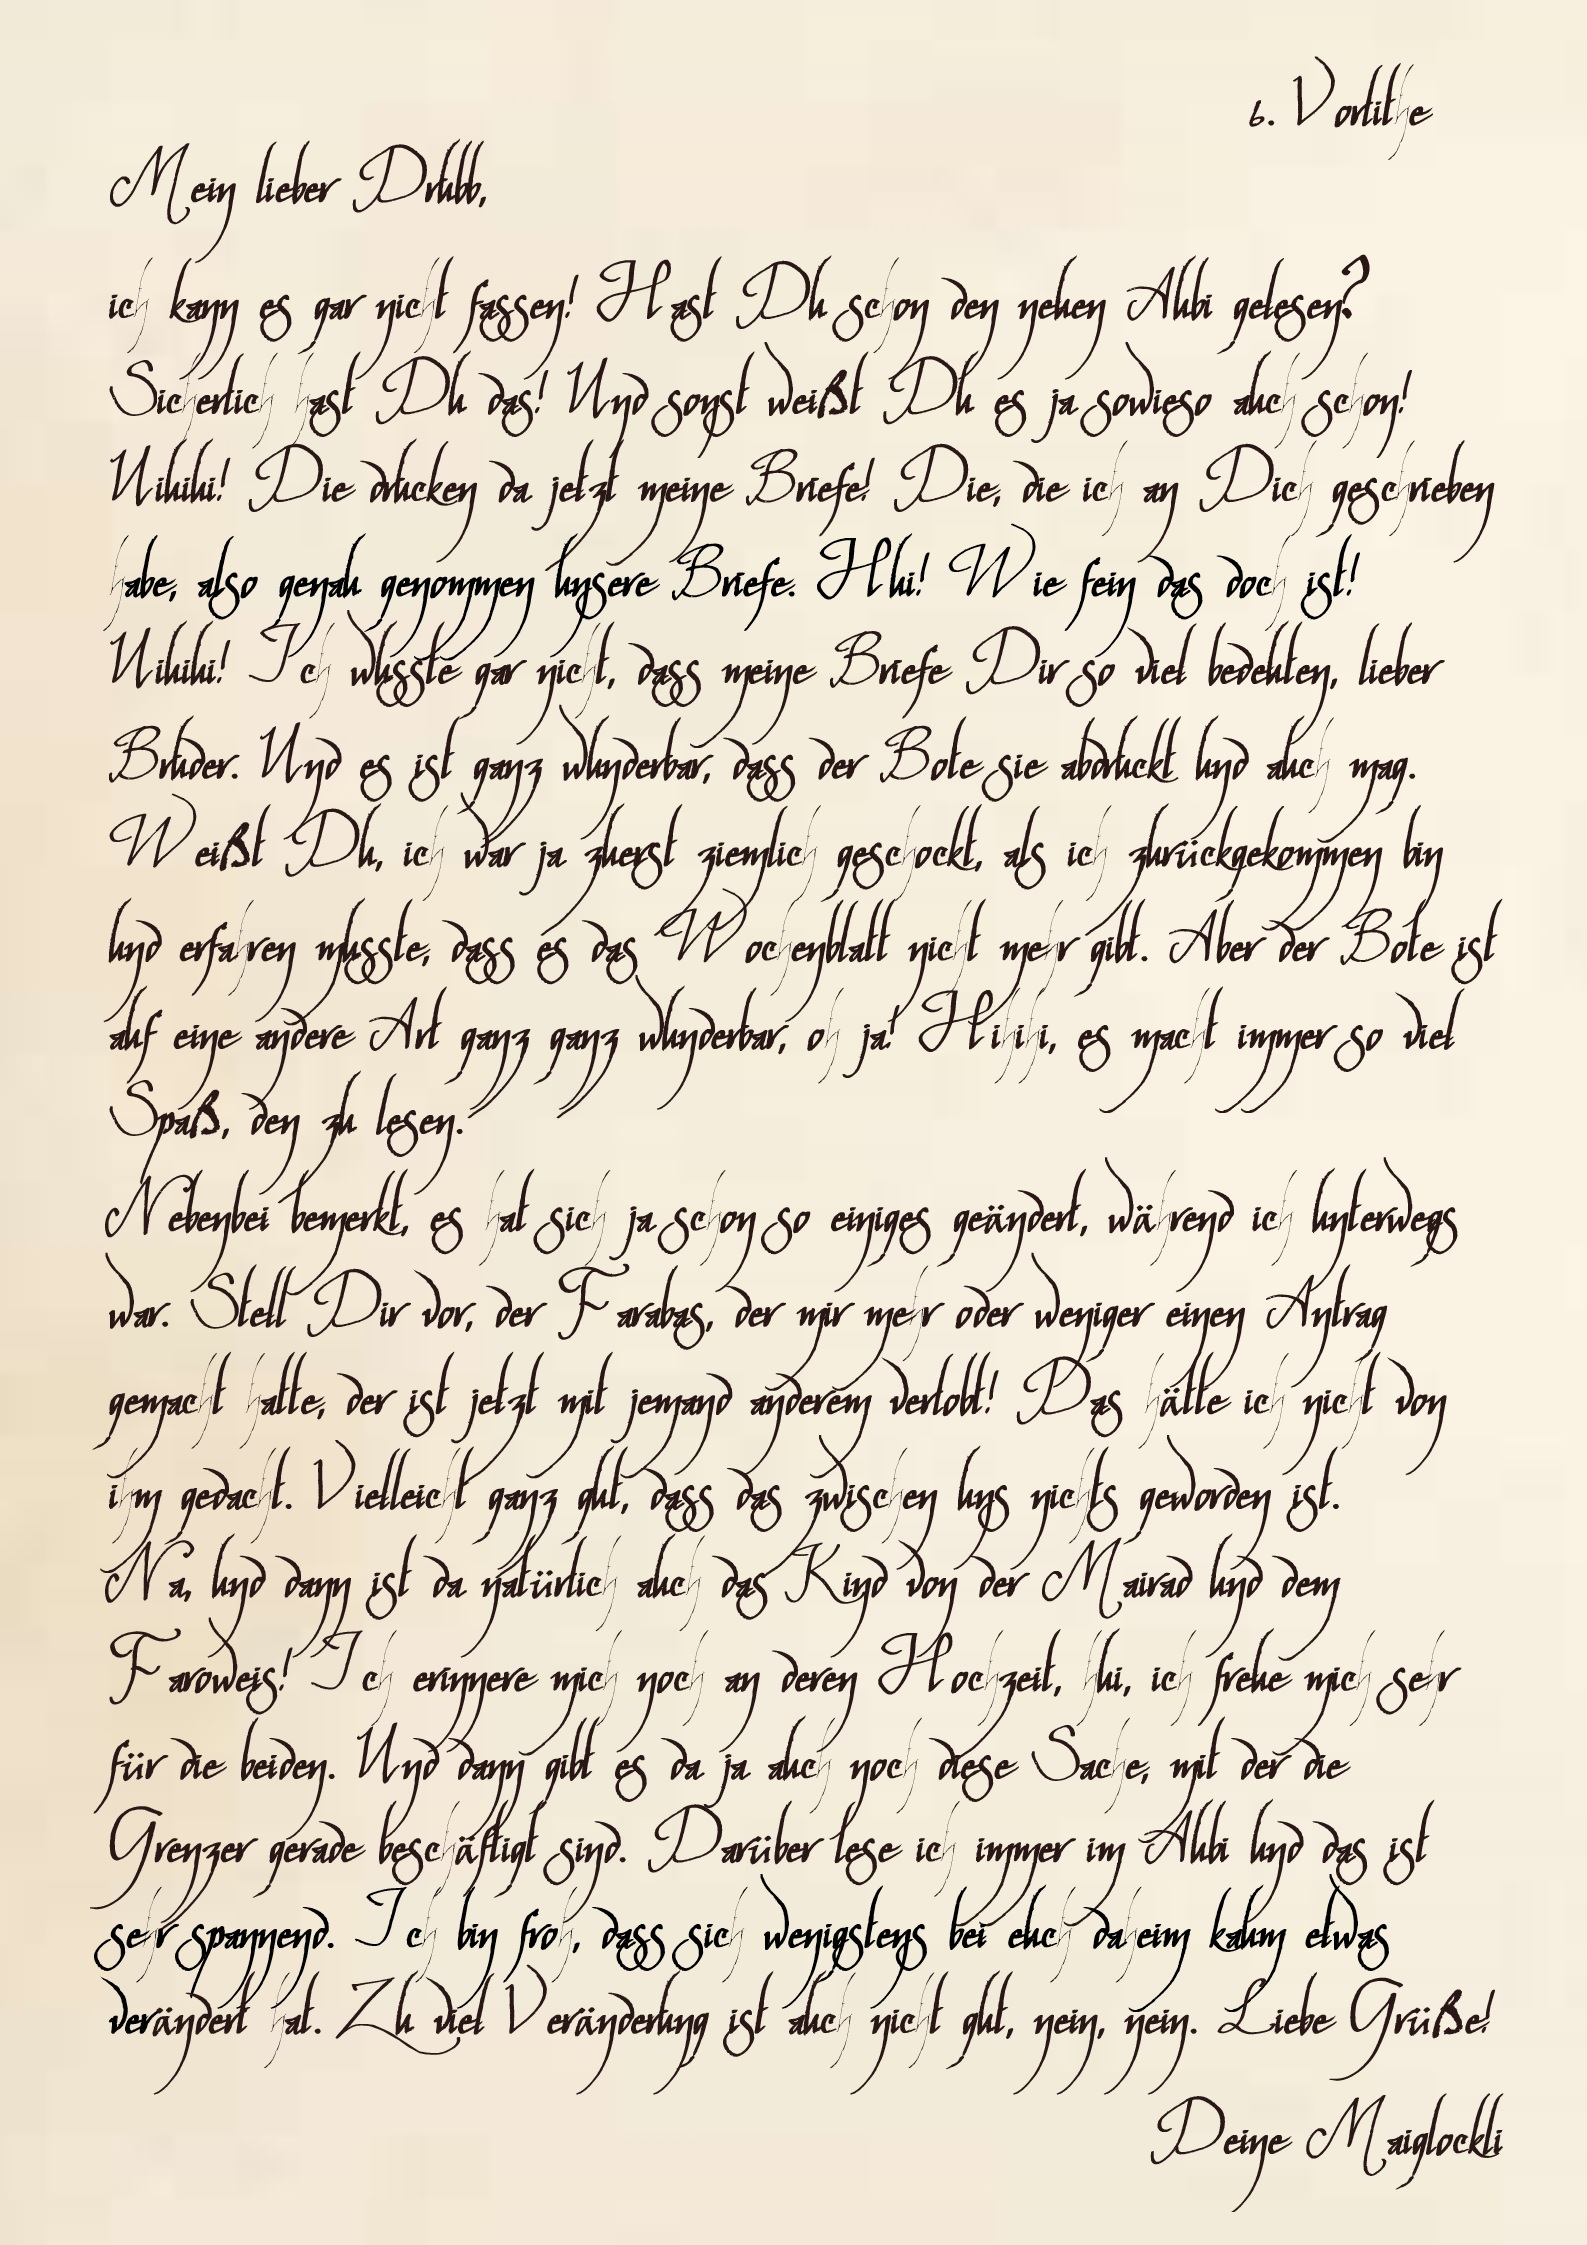 6. Vorlithe
Mein lieber Drubb,
ich kann es gar nicht fassen! Hast Du schon den neuen Aubi gelesen?
Sicherlich hast Du das! Und sonst weißt Du es ja sowieso auch schon!
Uihihi! Die drucken da jetzt meine Briefe! Die, die ich an Dich geschrieben
habe, also genau genommen unsere Briefe. Hui! Wie fein das doch ist!
Uihihi! Ich wusste gar nicht, dass meine Briefe Dir so viel bedeuten, lieber
Bruder. Und es ist ganz wunderbar, dass der Bote sie abdruckt und auch mag.
Weißt Du, ich war ja zuerst ziemlich geschockt, als ich zurückgekommen bin
und erfahren musste, dass es das Wochenblatt nicht mehr gibt. Aber der Bote ist
auf eine andere Art ganz ganz wunderbar, oh ja! Hihihi, es macht immer so viel
Spaß, den zu lesen.
Nebenbei bemerkt, es hat sich ja schon so einiges geändert, während ich unterwegs
war. Stell Dir vor, der Farabas, der mir mehr oder weniger einen Antrag
gemacht hatte, der ist jetzt mit jemand anderem verlobt! Das hätte ich nicht von
ihm gedacht. Vielleicht ganz gut, dass das zwischen uns nichts geworden ist.
Na, und dann ist da natürlich auch das Kind von der Mairad und dem
Faroweis! Ich erinnere mich noch an deren Hochzeit, hui, ich freue mich sehr
für die beiden. Und dann gibt es da ja auch noch diese Sache, mit der die
Grenzer gerade beschäftigt sind. Darüber lese ich immer im Aubi und das ist
sehr spannend. Ich bin froh, dass sich wenigstens bei euch daheim kaum etwas
verändert hat. Zu viel Veränderung ist auch nicht gut, nein, nein. Liebe Grüße!
Deine Maiglockli